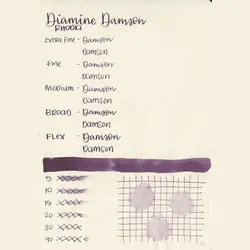 Diamine Damson
RHODIA
EXTRA FINE - Damson
Damson
Fine - Damson
Damson
Medium - Damson
Damson
BROAD - Damson
Damson
FLEX - Damson
Damson
5 xxxxx
10 xxxxx
15 xxxxx
20 xxxxx
30 xxxxx
40 xxxxx